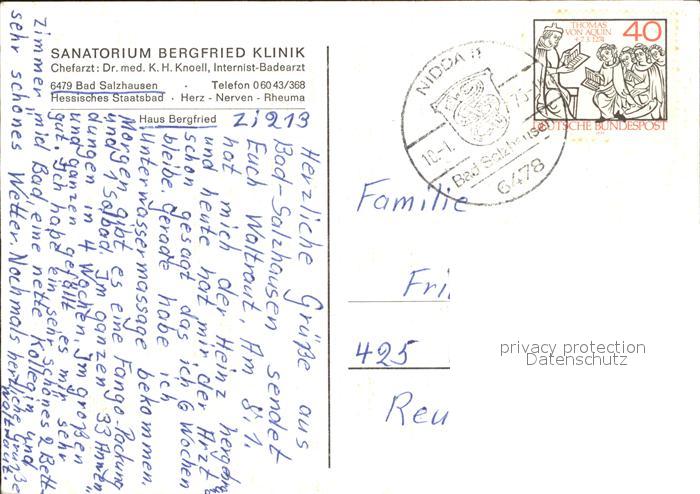 SANATORIUM BERGFRIED KLINIK
Chefarzt: Dr. med. K. H. Knoell, Internist-Badearzt
6479 Bad Salzhausen · Telefon 06043/368
Hessisches Staatsbad · Herz - Nerven - Rheuma
Haus Bergfried Zi 213
Herzliche Grüße aus
Bad-Salzhausen sendet
Euch Waltraut. Am 8.1.
hat mich der Heinz hergebr.
und heute hat mir der Arzt
schon gesagt das ich 6 Wochen
bleibe. gerade habe ich
Unterwassermassage bekommen.
Morgen gibt es eine Fango-Packung
und 1 Solbad. Im ganzen 33 Anwen-
dungen in 4 Wochen. Im großen
und ganzen gefällt es mir sehr
gut. Ich habe ein sehr schönes 2 Bett-
zimmer mid Bad, eine nette Kollegin und
sehr schönes Wetter Nochmals herzliche Grüße
Waltraut.
NIDDA 11
10.-1.
75
Bad Salzhausen
6478
THOMAS
VON AQUIN
40
DEUTSCHE BUNDESPOST
Familie
Fri
425
Reu
privacy protection
Datenschutz